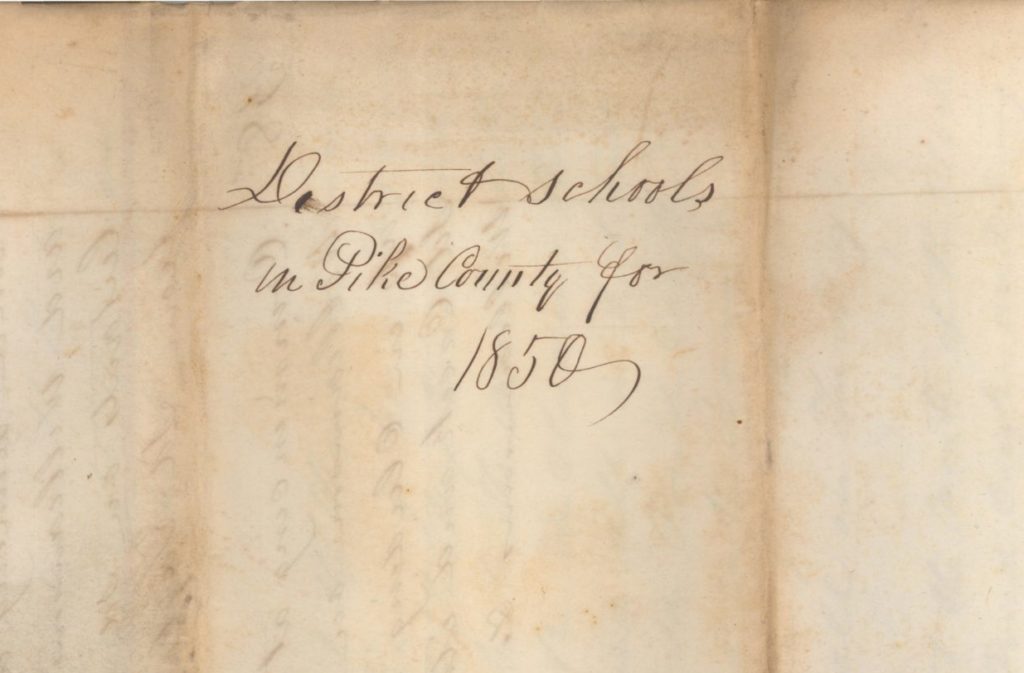 District schools
in Pike County for
1850